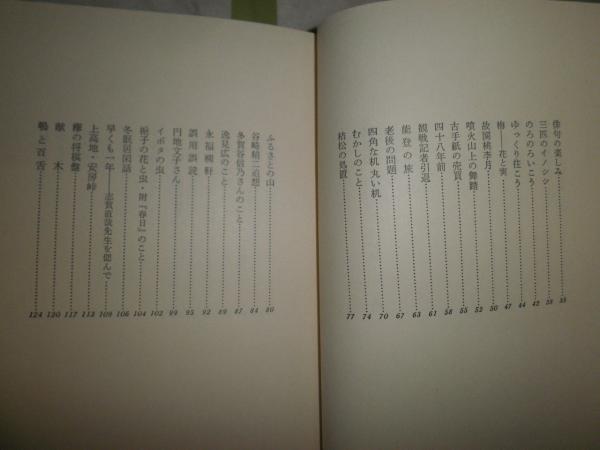 俳句の楽しみ 35
三匹のイノシシ 38
のろのろいこう 42
ゆっくり往こう 44
梅——花と実 47
故園桃李月 50
噴火山上の舞踏 52
古手紙の売買 55
四十八年前 58
観戦記者引退 61
能登の旅 63
老後の問題 67
四角な机 丸い机 70
むかしのこと 74
枯松の処置 77
ふるさとの山 80
谷崎精二追想 84
多賀谷信乃さんのこと 87
逸見広のこと 89
永福横軒 92
誤用誤読 95
円地文子さん 99
イボタの虫 102
梔子の花と虫・附『春日』のこと 104
冬眠居閑話 106
早くも一年——志賀直哉先生を偲んで 109
上高地・安房峠 113
榧の将棋盤 117
献木 120
鵯と百舌 124